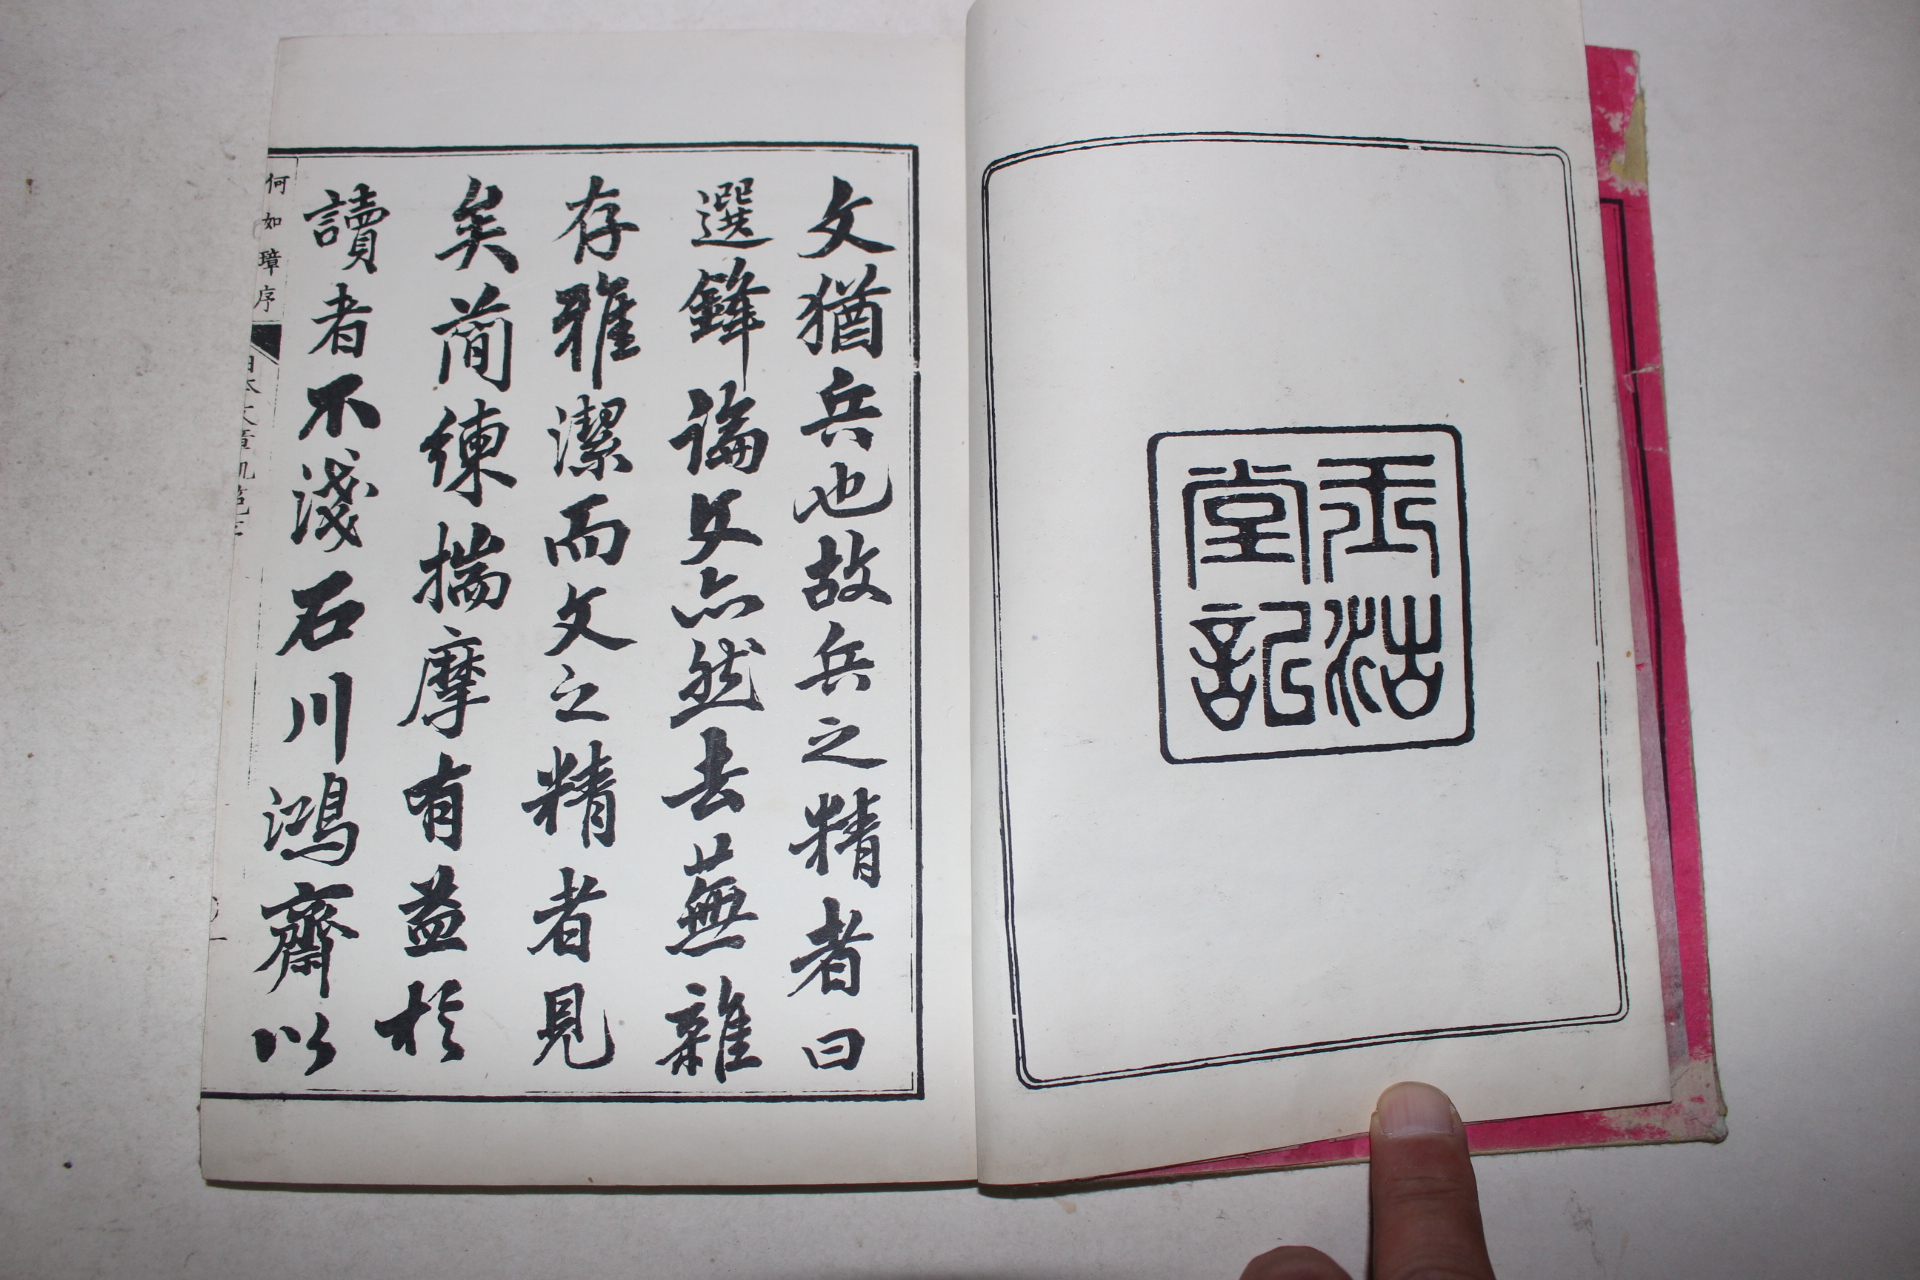 玉沽
堂記
文猶兵也故兵之精者曰
選鋒論文亦然去蕪雜
存雅潔而文之精者見
矣簡練揣摩有益於
讀者不淺石川鴻齋以
何如璋序
日本文章軌範